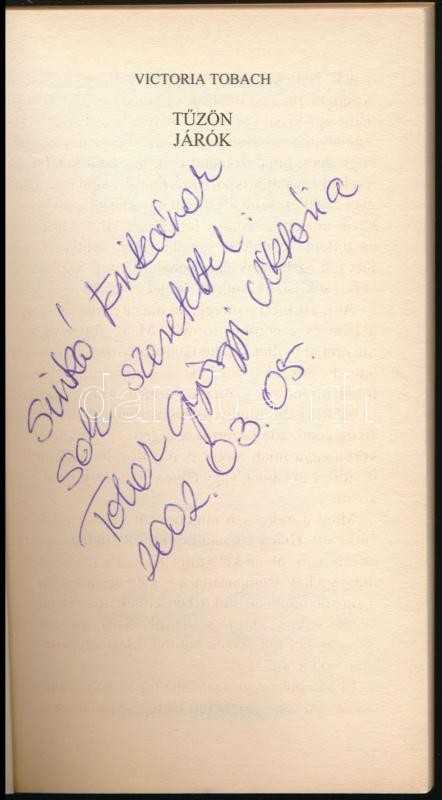 VICTORIA TOBACH
TŰZÖN
JÁRÓK
Sinkó Erikának
Sok szeretettel:
Györgyi Viktória
2002.03.05.
darabanth